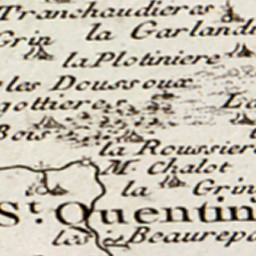 Tranchaudieres
la Garland
Grin
la Plotiniere
les Doussoux
gottieres
La
Bois
la Roussier
M. Chalot
la Grin
St. Quentin
les Beaurepa